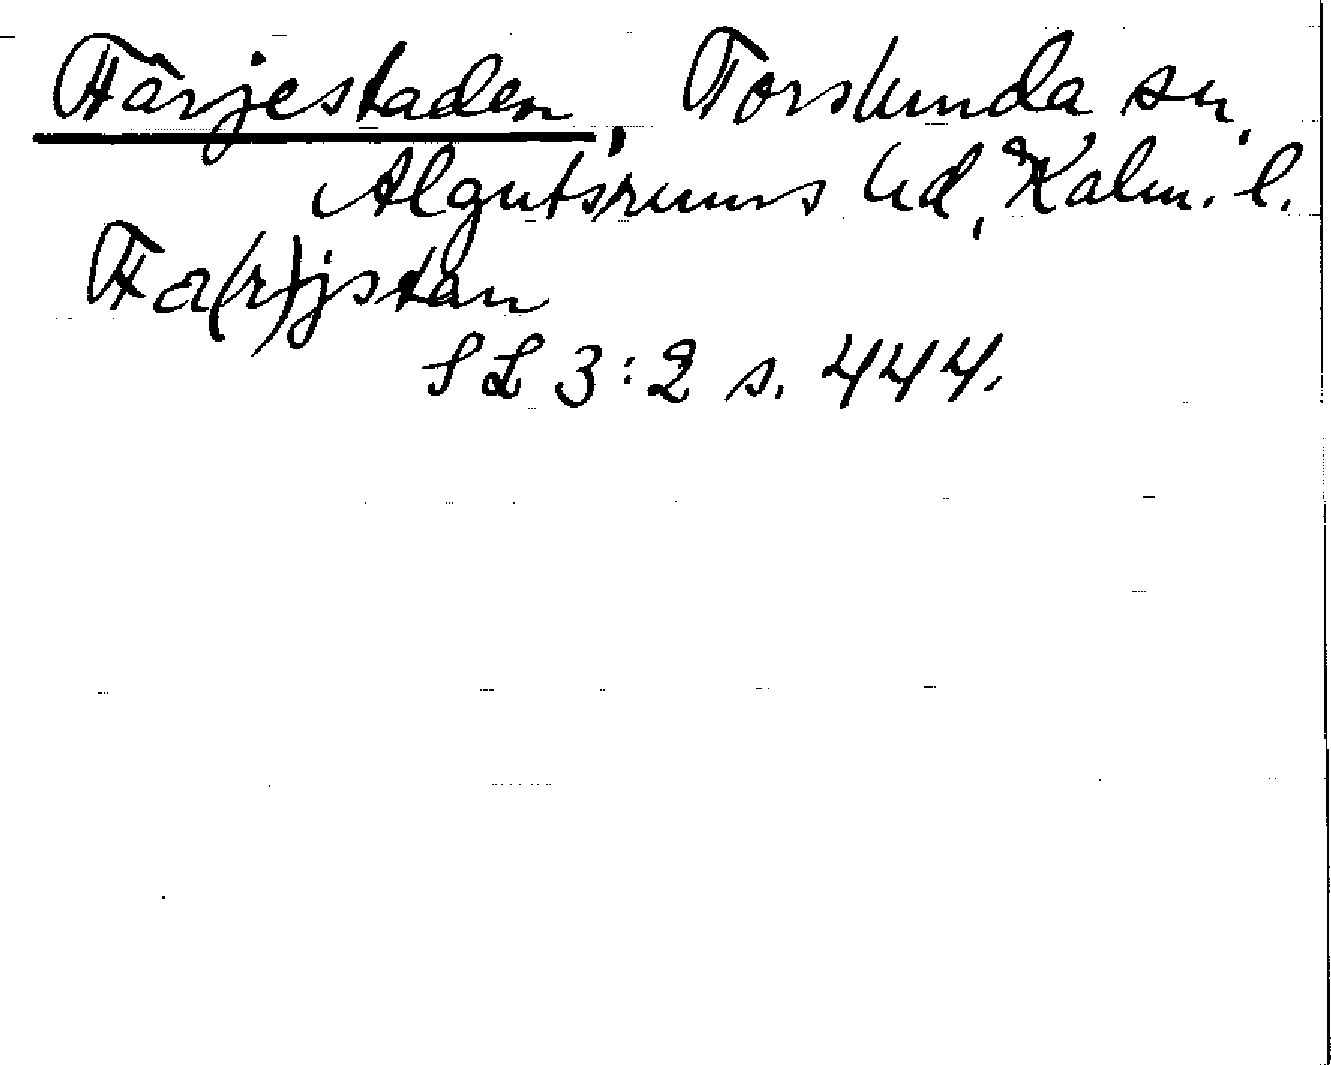 Färjestaden, Torslunda sn,
Algutsrums hd, Kalm. l.
Fa(r)jstan
SL 3:2 s. 444.